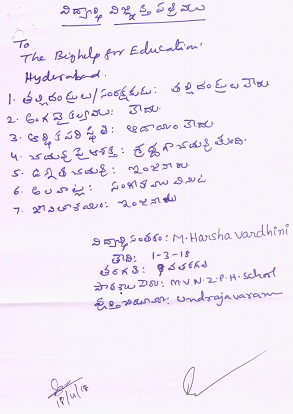 విద్యార్థి విజ్ఞప్తి పత్రము
To
The Bighelp for Education
Hyderabad.
1. తల్లిదండ్రులు/సంరక్షకుడు: తల్లిదండ్రులు లేరు
2. అంగవైకల్యము: లేదు.
3. ఆర్థిక పరిస్థితి: ఆదాయం లేదు.
4. చదువు పై ఆసక్తి: శ్రద్ధగా చదువుతుంది.
5. ఉన్నత చదువు: ఇంజనీరు
6. అలవాట్లు: సంగీతము వినుట
7. జీవితాశయం: ఇంజనీరు
విద్యార్థి సంతకం: M. Harsha vardhini
తేది: 1-3-18
తరగతి: తరగతి
పాఠశాల పేరు: M.V.N.Z.P.H. School
Undrajavaram
18/4/18